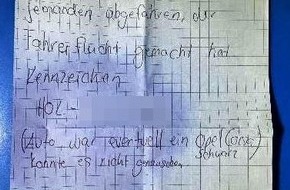 jemanden abgefahren, der
Fahrerflucht gemacht hat
Kennzeichen
HOL -
(Auto war eventuell ein Opel (Corsa)
konnte es nicht genau sehen schwarz